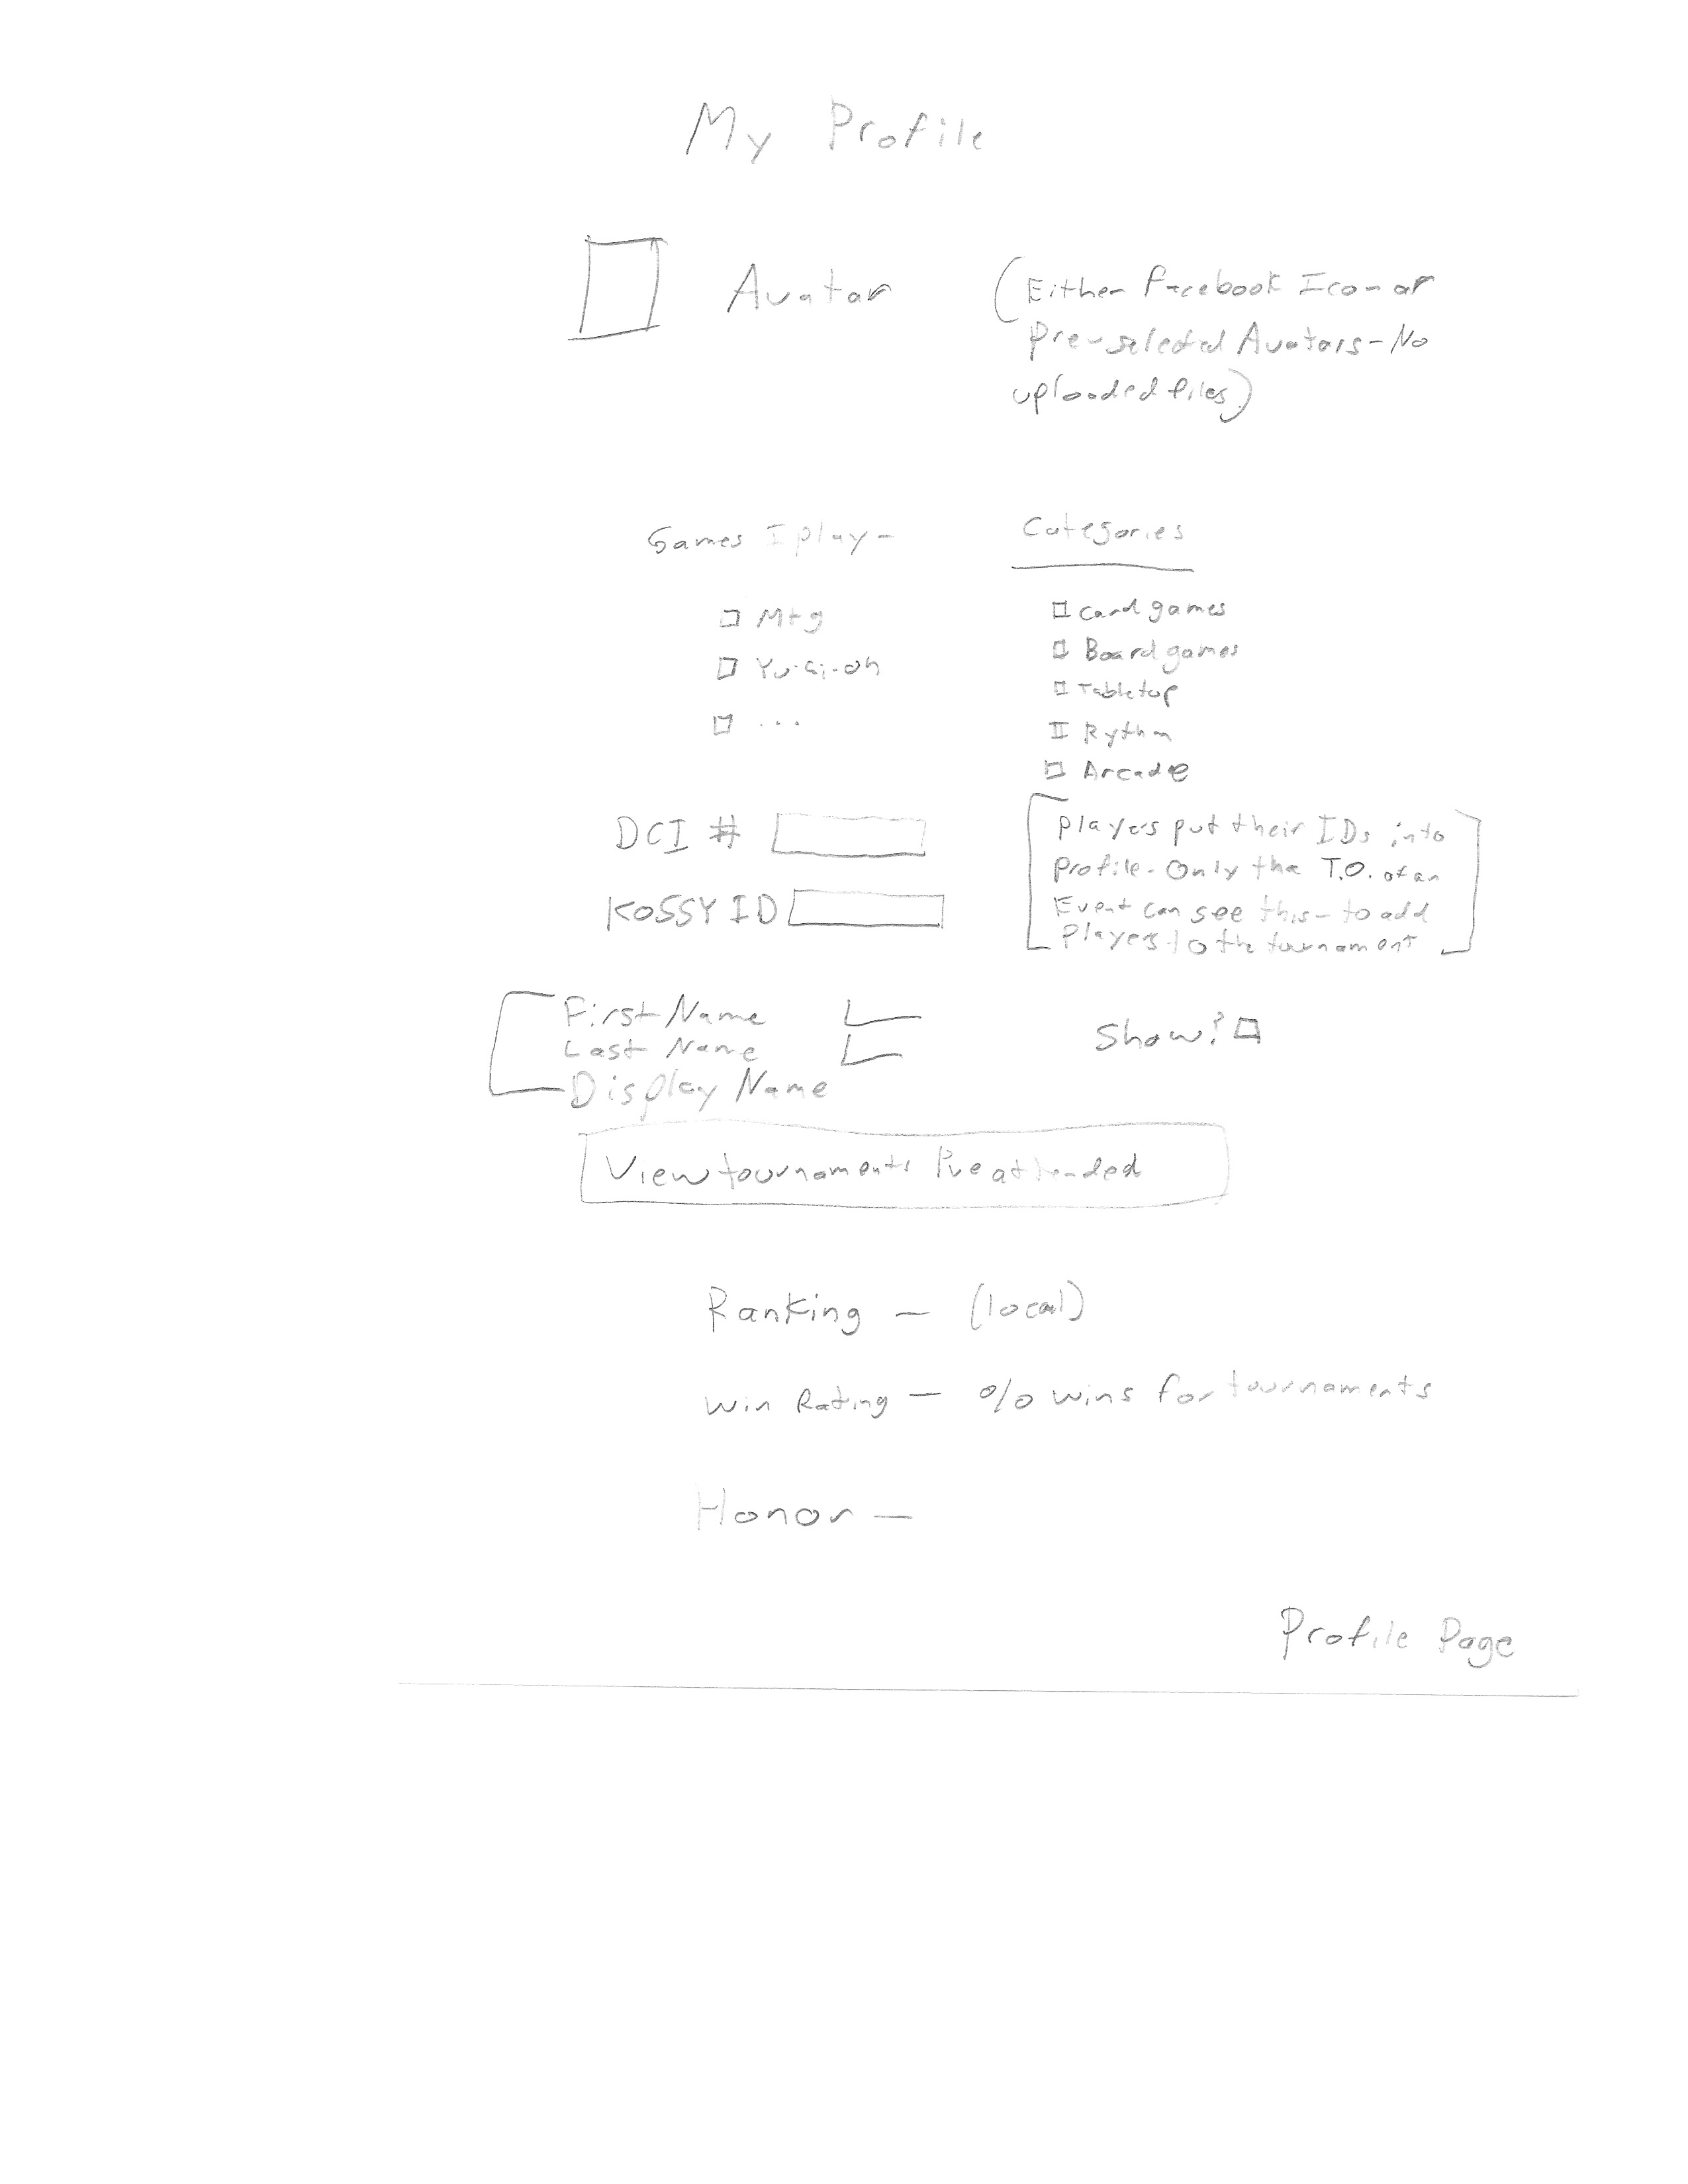 My Profile
Avatar
(Either Facebook Icon or
Pre-selected Avatars - No
uploaded files)
Games I play -
Categories
Mtg
Yu-Gi-oh
...
Card games
Board games
Tabletop
Rythm
Arcade
DCI #
KOSSY ID
Players put their IDs into
Profile - Only the T.O. of an
Event can see this - to add
Players to the tournament
First Name
Last Name
Display Name
Show?
View tournaments I've attended
Ranking - (local)
Win Rating - % wins for tournaments
Honor -
Profile Page